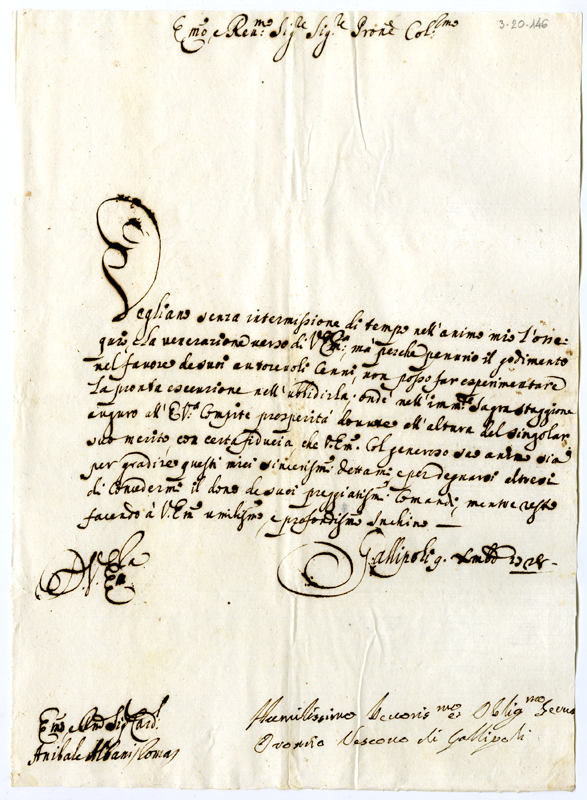 Em̃o, e Ren.mo Sig.re Sig.re Prone Col.mo
3-20-146
Vegliano senza intermissione di tempo nell'animo mio l'osse-
quio, e la venerazione verso di V. Em.; mà perche penurio il godimento
nel favore de suoi autorevoli Cenni, non posso far esperimentare
La pronta esecuzione nell'ubbidirla. onde nell'imm.te Sagra staggione
auguro all'E.V. Compite prosperità dovute all'altura del singolar
suo merito con certa fiducia che V. Em. Col generoso suo animo sia
per gradire questi miei sincerism.i dettami e per degnarsi altresi
di Concedermi il dono de suoi preggiatism.i Comandi, mentre resto
facendo à V. Em. umilism.o, e profondism.o Inchino —
Gallipoli 9. Xmbre
D. V. Em.za
Em̃o e Rnd Sig. Card.
Anibale Albani Roma
Humilissimo Devotis.mo et Oblig.mo Servo
Oronzio Vescovo di Gallipoli